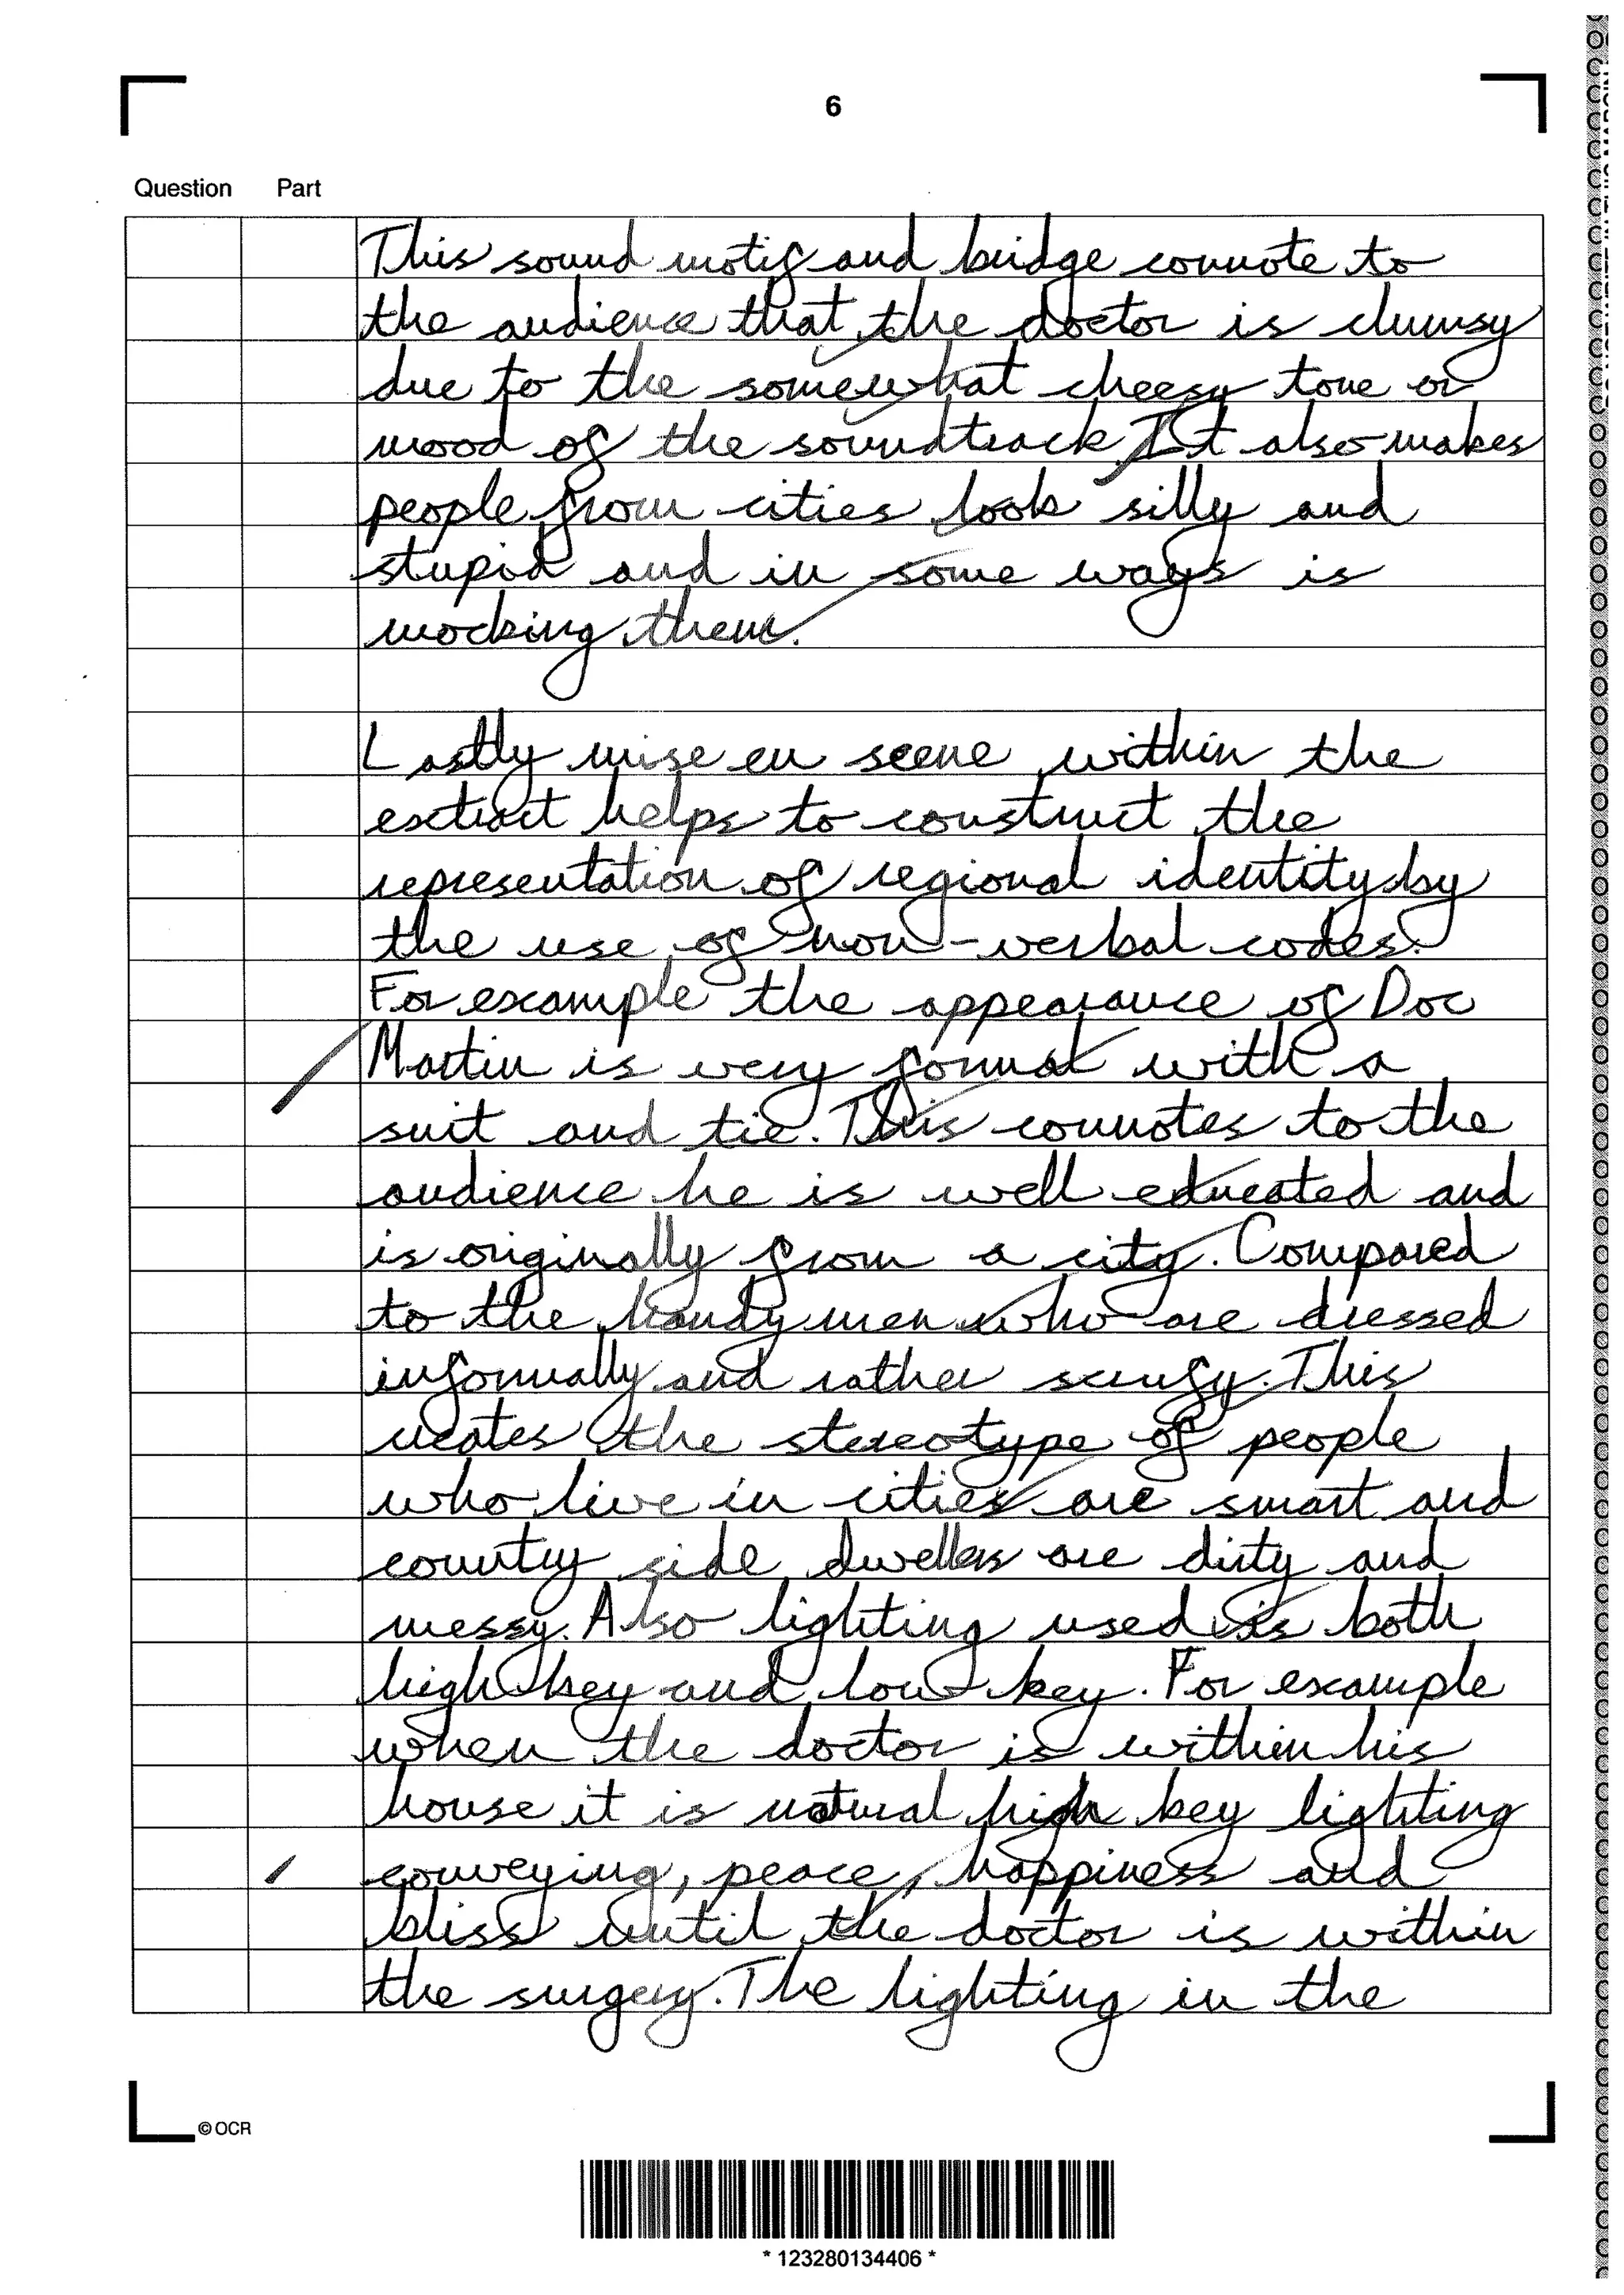 6
Question Part
This sound motif and bridge connote to
the audience that the doctor is clumsy
due to the somewhat cheesy tone or
mood of the soundtrack. It also makes
people from cities look silly and
stupid and in some ways is
mocking them.
Lastly mise en scene within the
extract helps to construct the
representation of regional identity by
the use of non-verbal codes.
For example the appearance of Doc
Martin is very formal with a
suit and tie. This connotes to the
audience he is well educated and
is originally from a city. Compared
to the handy men who are dressed
informally and rather scruffy. This
creates the stereotype of people
who live in cities are smart and
country side dwellers are dirty and
messy. Also lighting used is both
high key and low key. For example
when the doctor is within his
house it is natural high key lighting
conveying, peace, happiness and
bliss until the doctor is within
the surgery. The lighting in the
© OCR
* 123280134406 *